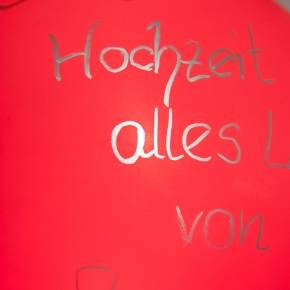 Hochzeit
alles L
von